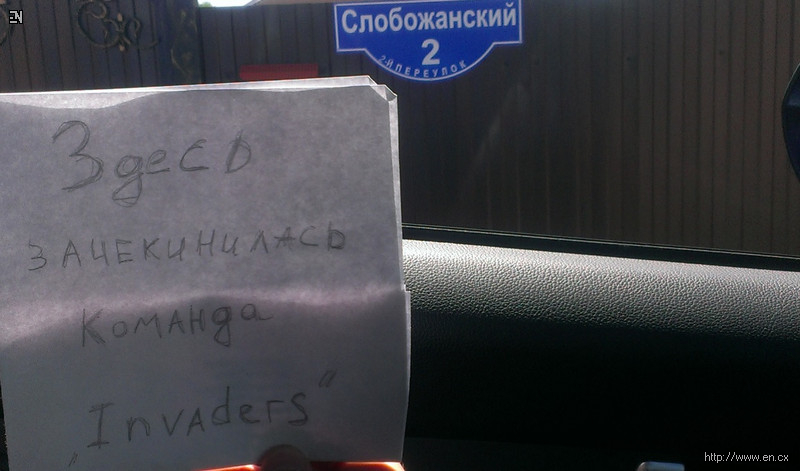 EN
Слобожанский
2
2-й ПЕРЕУЛОК
Здесь
зачекинилась
команда
"Invaders"
http://www.en.cx